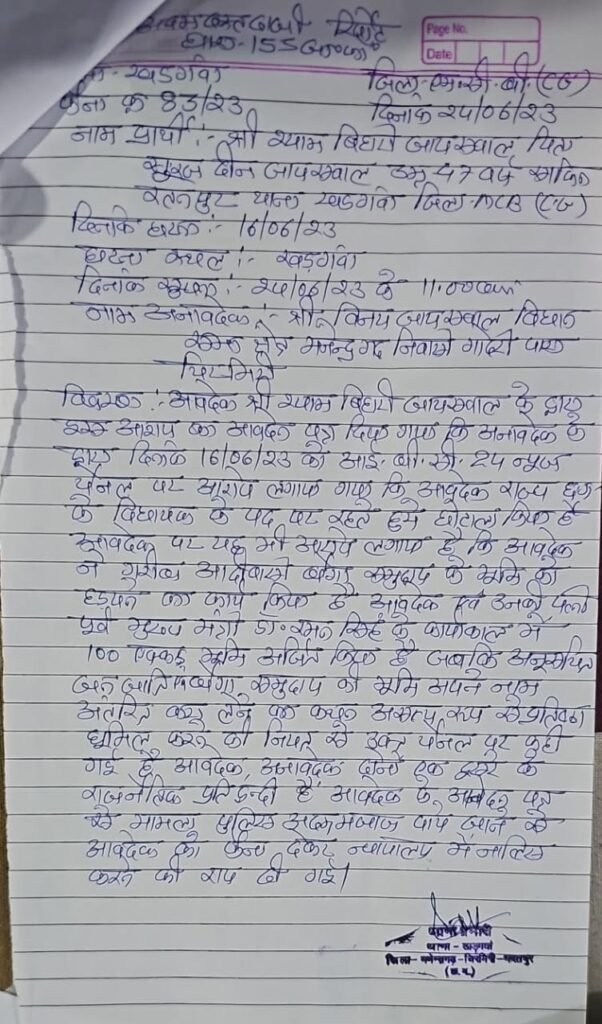 रिपोर्ट
Page No.
धारा-155 जा०फौ
Date
खडगंवा जिला-एम.सी.बी.(CG)
फैना क्र 83/23 दिनांक 24/06/23
नाम प्रार्थी :- श्री श्याम बिहारी जायसवाल पिता
सूरज दीन जायसवाल उम्र 47 वर्ष साकिन
रतनपुर थाना खडगंवा जिला-MCB (CG)
दिनांक घटना :- 16/06/23
घटना स्थल :- खडगंवा
दिनांक सूचना :- 24/06/23 के 11.00
नाम अनावेदक :- श्री विनय जायसवाल विधान
सभा क्षेत्र मनेन्द्रगढ निवासी गोदरी पारा
चिरमिरी
विवरण :- आवेदक श्री श्याम बिहारी जायसवाल के द्वारा
इस आशय का आवेदन पत्र दिया गया कि अनावेदक के
द्वारा दिनांक 16/06/23 को आई. बी. सी. 24 न्यूज
चैनल पर आरोप लगाया गया कि आवेदक राज्य
के विधायक के पद पर रहते हुये घोटाला किया है
आवेदक पर यह भी आरोप लगाया है कि आवेदक
ने गरीब आदीवासी समुदाय के भूमि को
हडपने का कार्य किया है आवेदक एवं उनकी पत्नी
पूर्व मुख्य मंत्री डॉ. रमन सिंह के कार्यकाल में
100 एक्कड़ भूमि अर्जित किया है जबकि अनुसूचित
जन जाति समुदाय की भूमि अपने नाम
अंतरित करा लेने का कथन असत्य रूप से प्रतिष्ठा
धूमिल करने की नियत से उक्त चैनल पर कही
गई है आवेदक, अनावेदक दोनो एक दूसरे के
राजनैतिक प्रतिद्वन्दी है, आवेदक के आवेदन पत्र
से मामला पुलिस अहस्तक्षेप पाये जाने से
आवेदक को फैना देकर न्यायालय में नालिस
करने की राय दी गई।
थाना प्रभारी
थाना - खड़गवां
जिला- मनेन्द्रगढ़-चिरमिरी-भरतपुर
(छ.ग.)